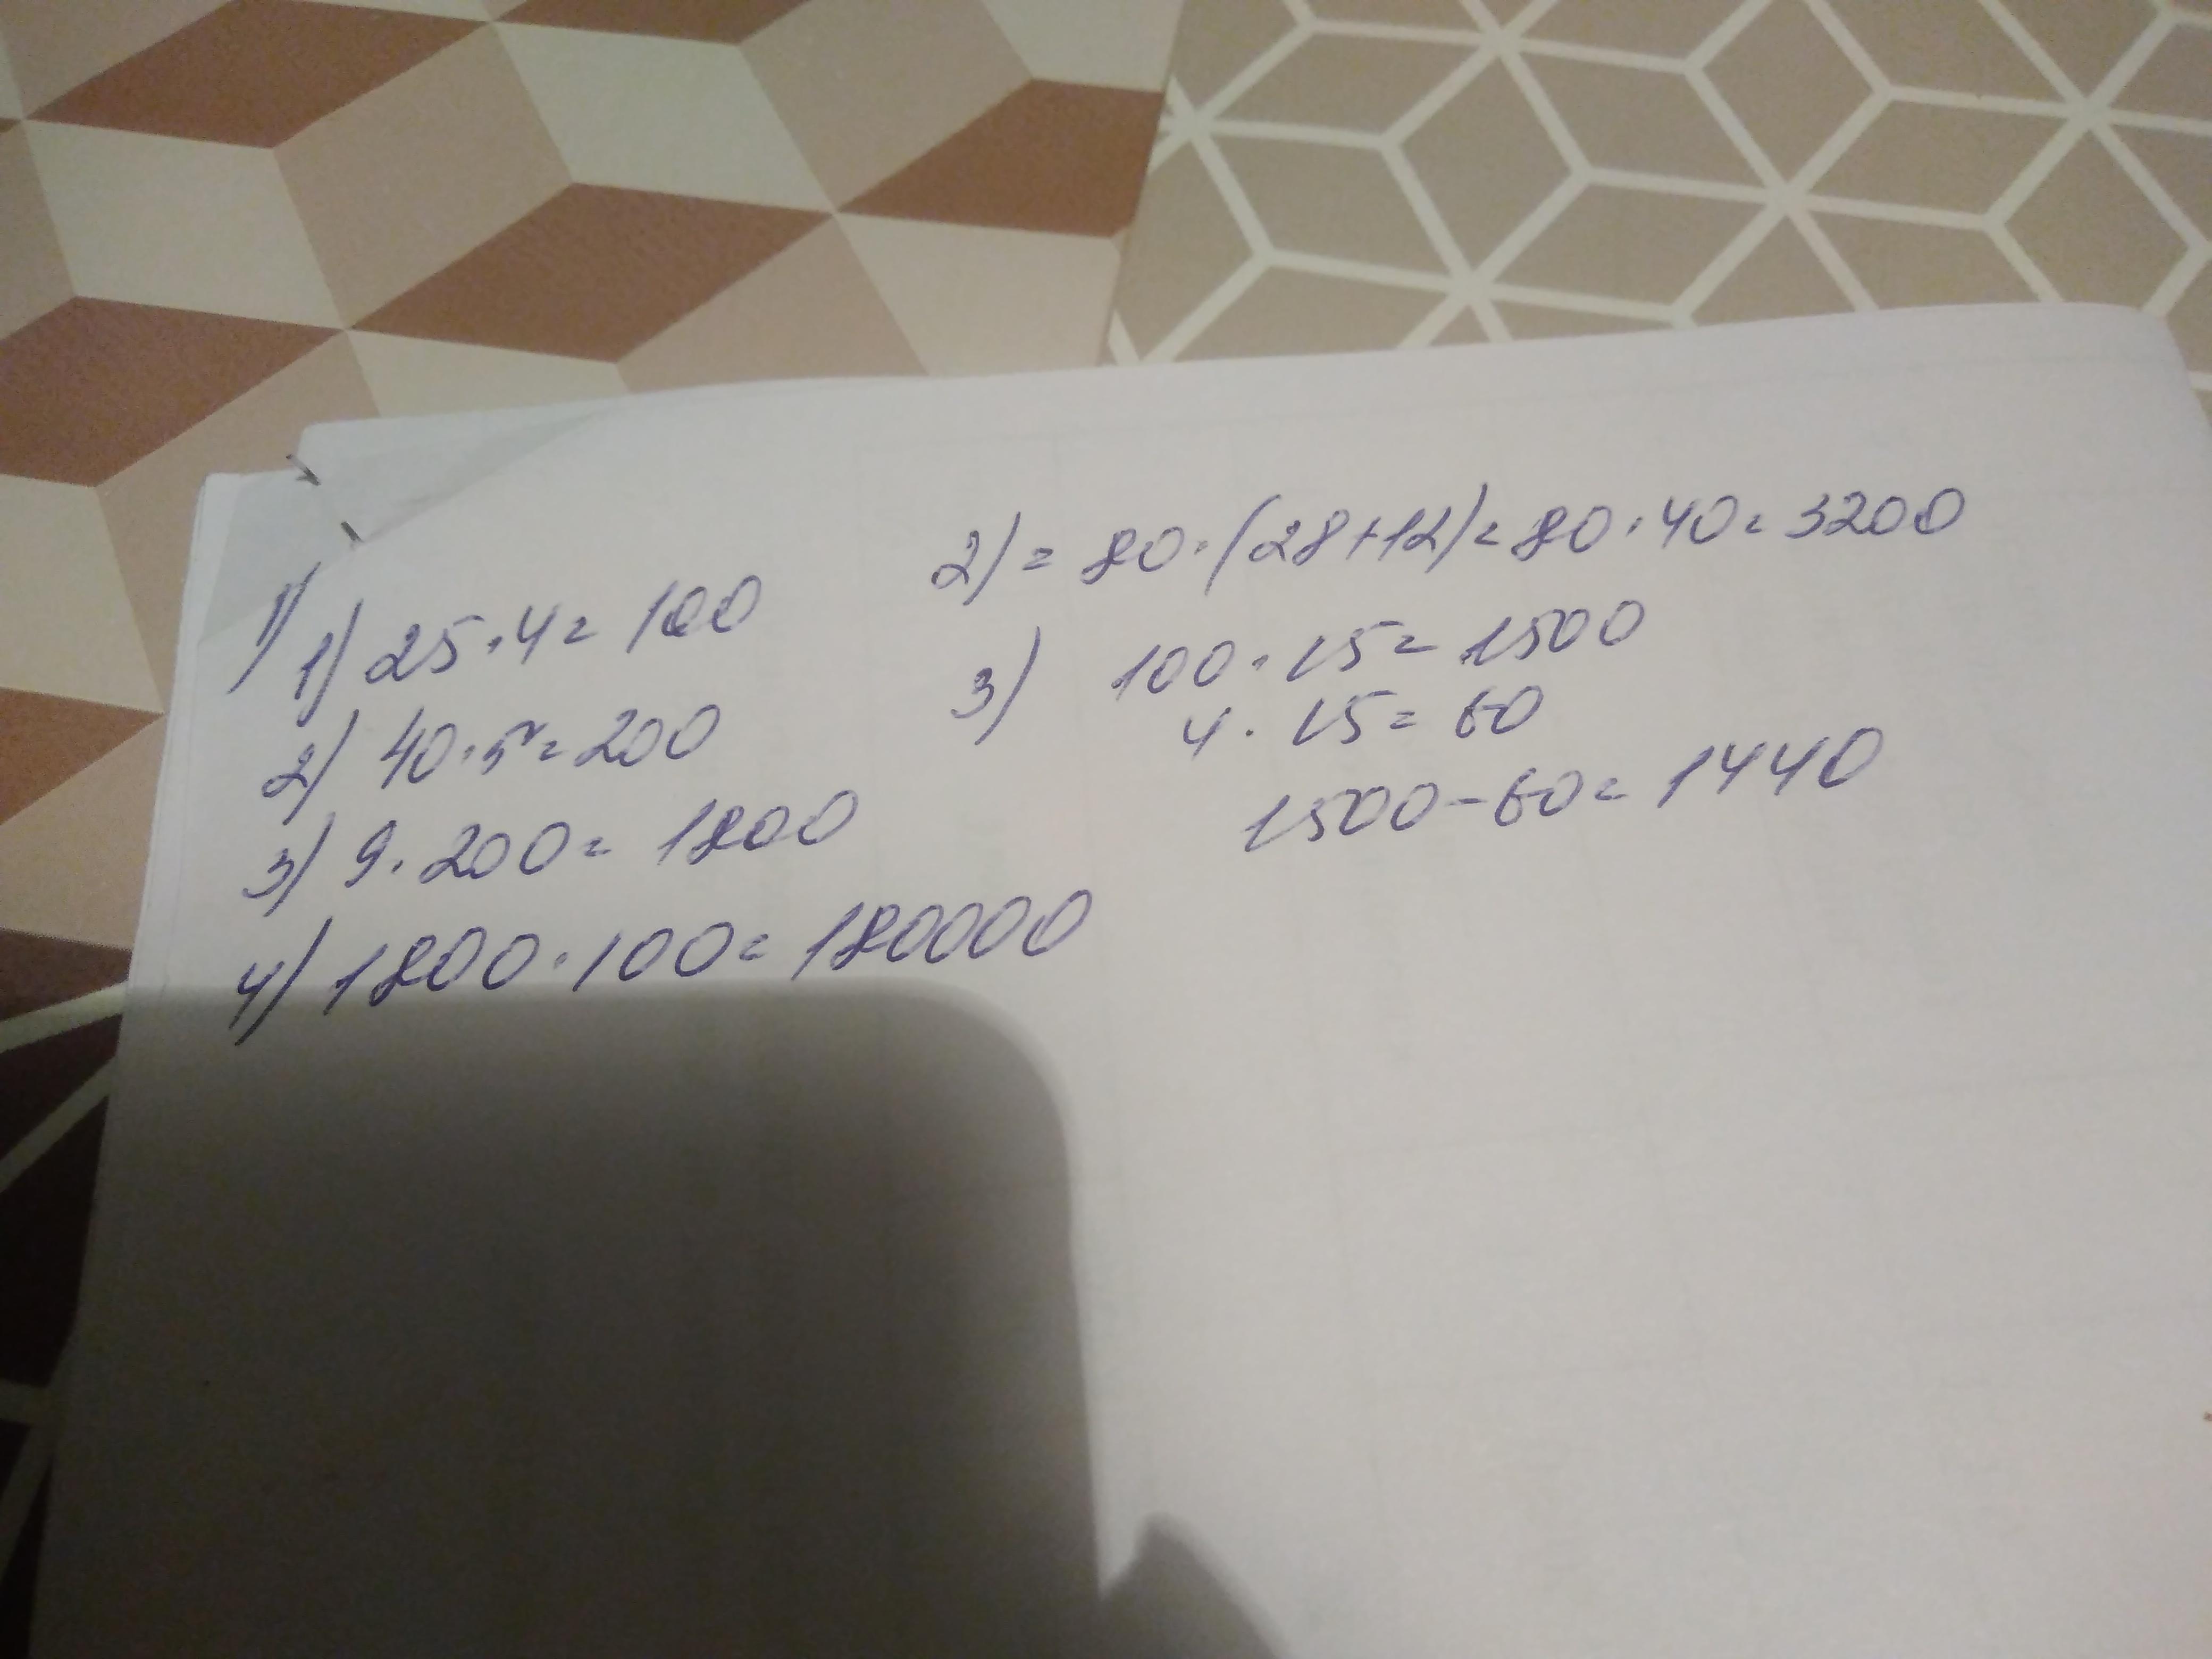 1)
1) 25·4=100
2) 40·5=200
3) 9·200=1800
4) 1800·100=180000
2) = 80·(28+12)=80·40=3200
3) 100·15=1500
4·15=60
1500-60=1440